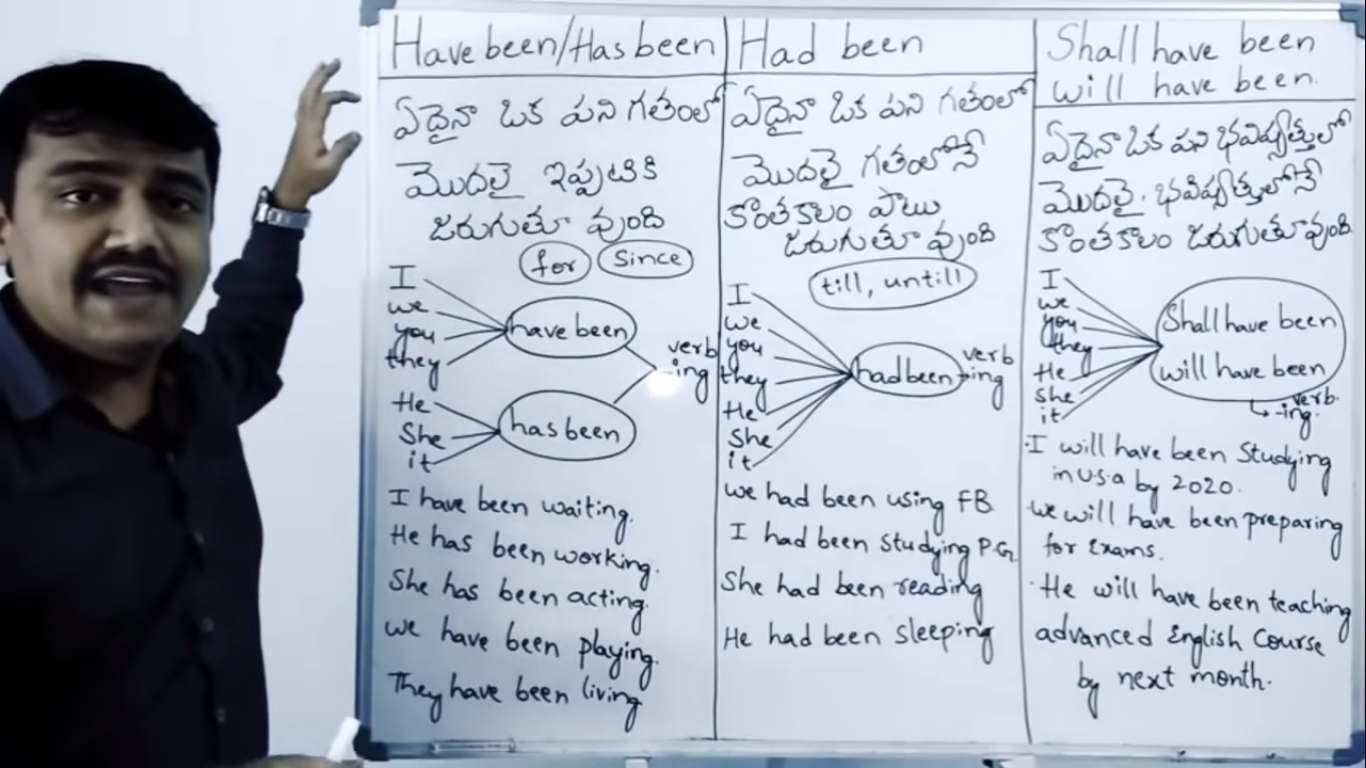 Have been/Has been
ఏదైనా ఒక పని గతంలో
మొదలై ఇప్పటికి
జరుగుతూ వుంది
for since
I
we
you
they
have been
He
She
it
has been
verb
-ing
I have been waiting.
He has been working.
She has been acting.
we have been playing.
They have been living
Had been
ఏదైనా ఒక పని గతంలో
మొదలై గతంలోనే
కొంతకాలం పాటు
జరుగుతూ వుంది
till, untill
I
we
you
they
He
She
it
had been
verb
-ing
we had been using FB
I had been studying P.G.
She had been reading
He had been sleeping
Shall have been
will have been.
ఏదైనా ఒక పని భవిష్యత్తులో
మొదలై, భవిష్యత్తులోనే
కొంతకాలం జరుగుతూ వుంది
I
we
you
they
He
She
it
Shall have been
will have been
verb.
-ing.
I will have been Studying
in U.S.a by 2020.
we will have been preparing
for Exams.
He will have been teaching
advanced English Course
by next month.